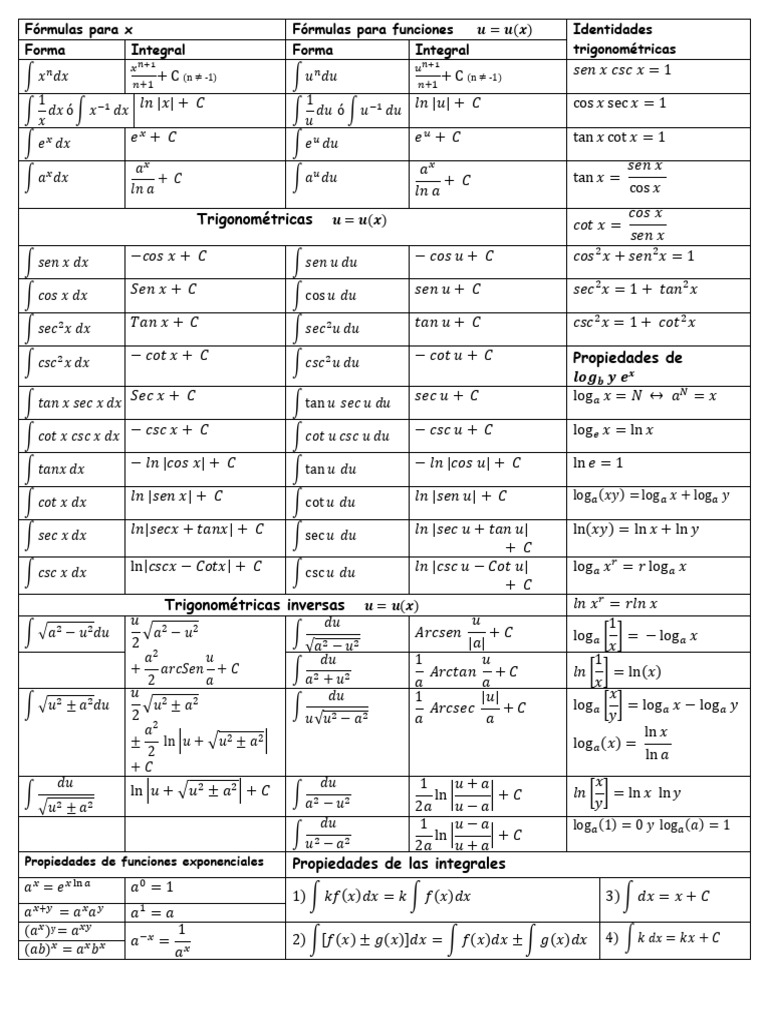 Fórmulas para x | Fórmulas para funciones u = u(x) | Identidades trigonométricas
Forma | Integral | Forma | Integral
∫ xⁿdx | xⁿ⁺¹/n+1 + C (n ≠ -1) | ∫ uⁿdu | uⁿ⁺¹/n+1 + C (n ≠ -1) | sen x csc x = 1
∫ 1/x dx ó ∫ x⁻¹ dx | ln |x| + C | ∫ 1/u du ó ∫ u⁻¹ du | ln |u| + C | cos x sec x = 1
∫ eˣ dx | eˣ + C | ∫ eᵘ du | eᵘ + C | tan x cot x = 1
∫ aˣdx | aˣ/ln a + C | ∫ aᵘdu | aˣ/ln a + C | tan x = sen x/cos x
Trigonométricas u = u(x) | cot x = cos x/sen x
∫ sen x dx | −cos x + C | ∫ sen u du | − cos u + C | cos²x + sen²x = 1
∫ cos x dx | Sen x + C | ∫ cos u du | sen u + C | sec²x = 1 + tan²x
∫ sec²x dx | Tan x + C | ∫ sec²u du | tan u + C | csc²x = 1 + cot²x
∫ csc²x dx | − cot x + C | ∫ csc²u du | − cot u + C | Propiedades de
log_b y eˣ
∫ tan x sec x dx | Sec x + C | ∫ tan u sec u du | sec u + C | logₐ x = N ↔ aᴺ = x
∫ cot x csc x dx | − csc x + C | ∫ cot u csc u du | − csc u + C | logₑ x = ln x
∫ tanx dx | − ln |cos x| + C | ∫ tan u du | − ln |cos u| + C | ln e = 1
∫ cot x dx | ln |sen x| + C | ∫ cot u du | ln |sen u| + C | logₐ(xy) = logₐ x + logₐ y
∫ sec x dx | ln|secx + tanx| + C | ∫ sec u du | ln |sec u + tan u| + C | ln(xy) = ln x + ln y
∫ csc x dx | ln|cscx − Cotx| + C | ∫ csc u du | ln |csc u − Cot u| + C | logₐ xʳ = r logₐ x
Trigonométricas inversas u = u(x) | ln xʳ = rln x
∫ √(a² − u²)du | u/2 √(a² − u²) + a²/2 arcSen u/a + C | ∫ du/√(a² − u²) | Arcsen u/|a| + C | logₐ [1/x] = − logₐ x
∫ du/(a² + u²) | 1/a Arctan u/a + C | ln [1/x] = ln(x)
∫ √(u² ± a²)du | u/2 √(u² ± a²) ± a²/2 ln|u + √(u² ± a²)| + C | ∫ du/(u√(u² − a²)) | 1/a Arcsec |u|/a + C | logₐ [x/y] = logₐ x − logₐ y
logₐ(x) = ln x/ln a
∫ du/√(u² ± a²) | ln|u + √(u² ± a²)| + C | ∫ du/(a² − u²) | 1/2a ln|(u + a)/(u − a)| + C | ln [x/y] = ln x ln y
∫ du/(u² − a²) | 1/2a ln|(u − a)/(u + a)| + C | logₐ(1) = 0 y logₐ(a) = 1
Propiedades de funciones exponenciales | Propiedades de las integrales
aˣ = eˣ ˡⁿ ᵃ | a⁰ = 1 | 1) ∫ kf(x)dx = k ∫ f(x)dx | 3) ∫ dx = x + C
aˣ⁺ʸ = aˣaʸ | a¹ = a
(aˣ)ʸ = aˣʸ | a⁻ˣ = 1/aˣ | 2) ∫[f(x) ± g(x)]dx = ∫ f(x)dx ± ∫ g(x)dx | 4) ∫ k dx = kx + C
(ab)ˣ = aˣbˣ